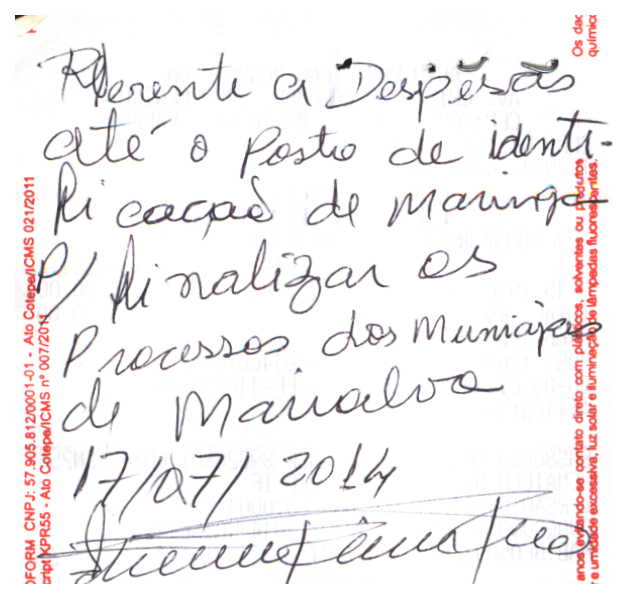 Referente a Despesas
até o Posto de identi-
ficação de Maringá
P/ finalizar os
Processos dos Municipes
de Marialva
17/07/2014
Os dad
químico
anos evitando-se contato direto com plásticos, solventes ou produtos
r e umidade excessiva, luz solar e iluminação de lâmpadas fluorescentes.
OFORM CNPJ: 57.905.812/0001-01 - Ato Cotepe/ICMS 021/2011
cript KPR55 - Ato Cotepe/ICMS nº 007/2011